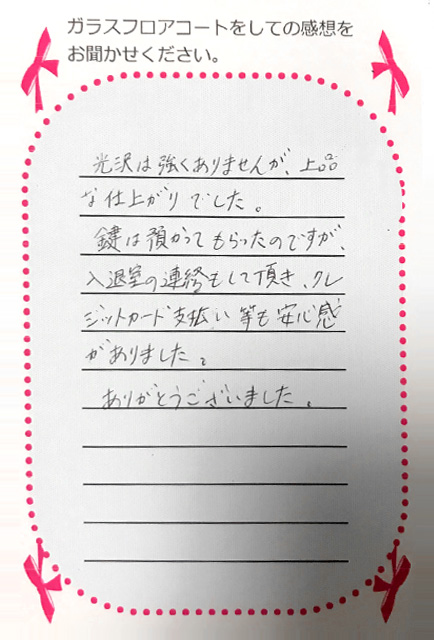 ガラスフロアコートをしての感想を
お聞かせください。
光沢は強くありませんが、上品
な仕上がりでした。
鍵は預かってもらったのですが、
入退室の連絡もして頂き、クレ
ジットカード支払い等も安心感
がありました。
ありがとうございました。